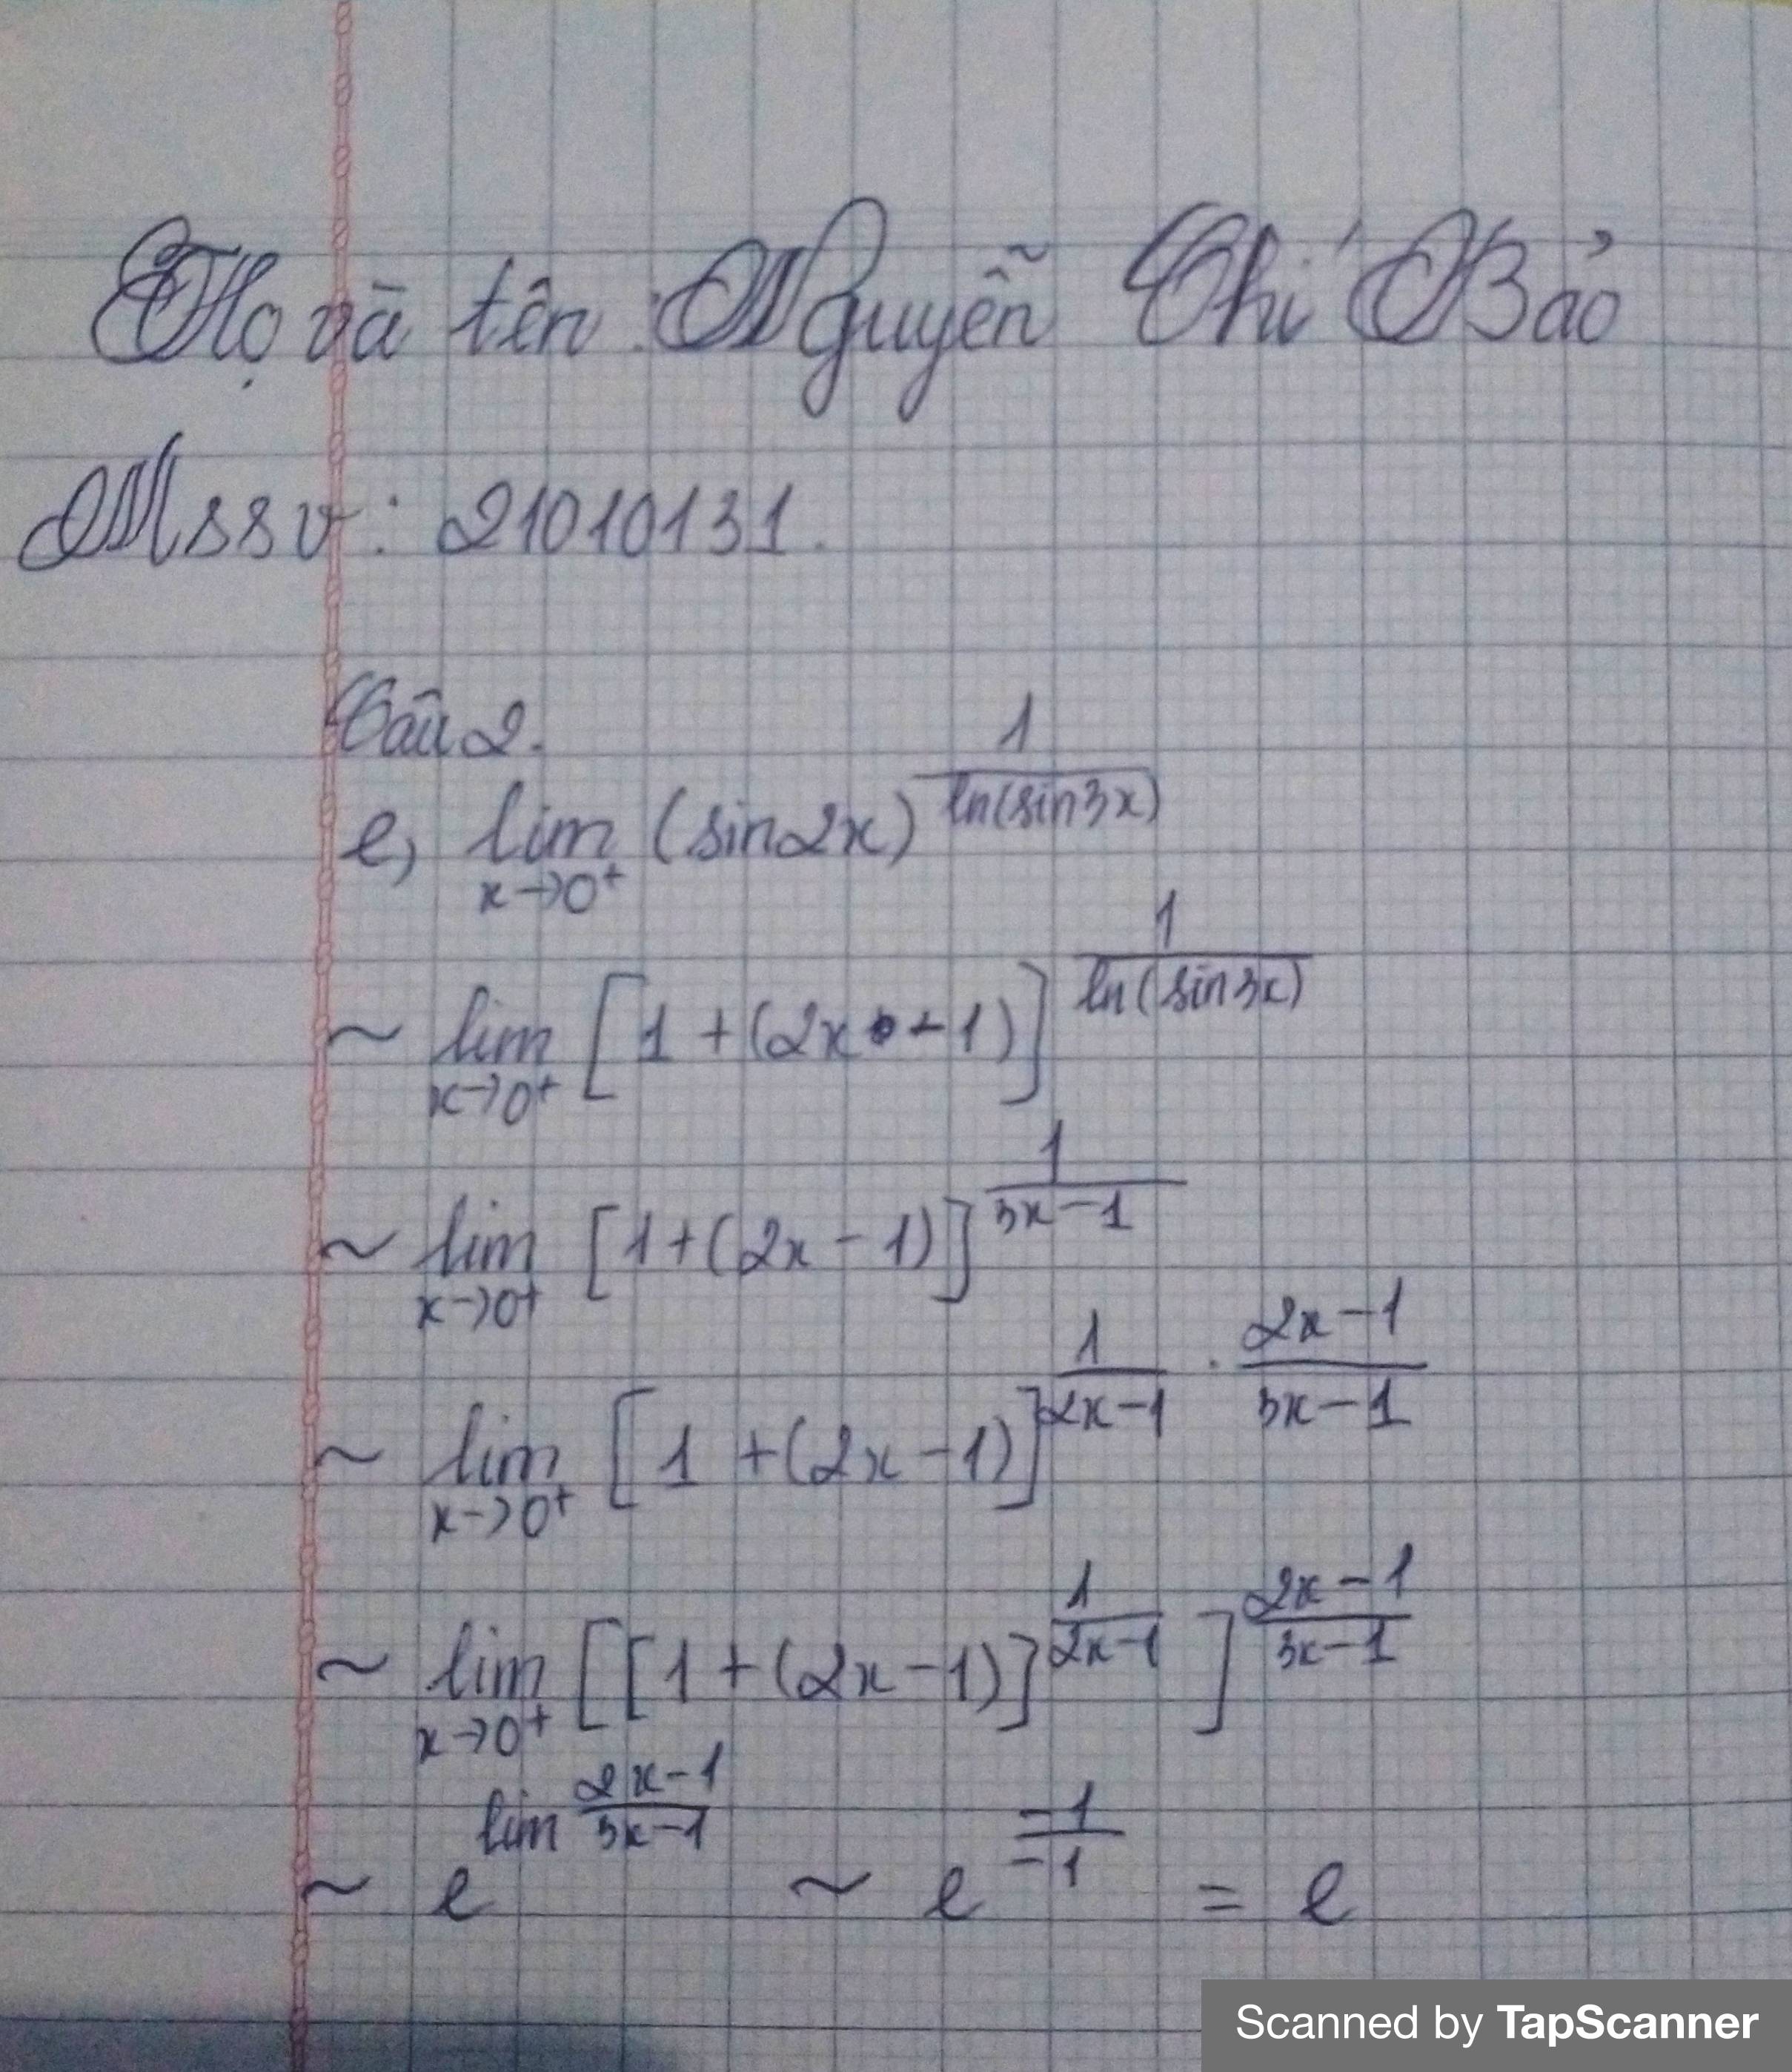 Họ và tên : Nguyễn Chí Bảo
Mssv : 21010131.
Câu 2.
e, lim_{x→0⁺} (sin2x)^{1/ln(sin3x)}
~ lim_{x→0⁺} [1 + (2x - 1)]^{1/ln(sin3x)}
~ lim_{x→0⁺} [1 + (2x - 1)]^{1/(3x - 1)}
~ lim_{x→0⁺} [1 + (2x - 1)]^{1/(2x - 1) · (2x - 1)/(3x - 1)}
~ lim_{x→0⁺} [[1 + (2x - 1)]^{1/(2x - 1)}]^{(2x - 1)/(3x - 1)}
~ e^{lim (2x - 1)/(3x - 1)} ~ e^{-1/-1} = e
Scanned by TapScanner